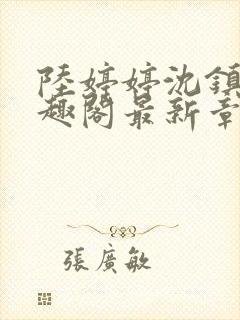 陸婷婷沈鎮
趣閣最新章
張廣敏